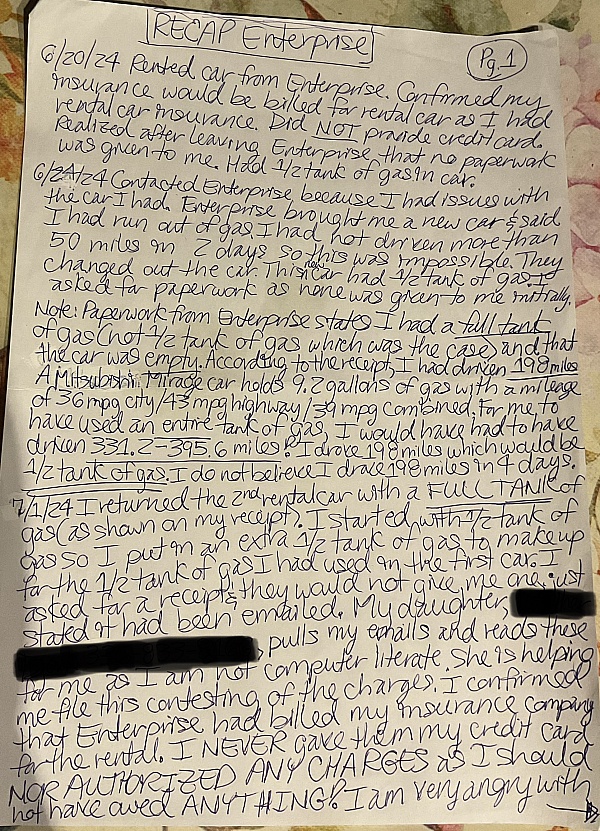 RECAP Enterprise
Pg. 1
6/20/24 Rented car from Enterprise. Confirmed my
insurance would be billed for rental car as I had
rental car insurance. Did NOT provide credit card.
Realized after leaving Enterprise that no paperwork
was given to me. Had 1/2 tank of gas in car.
6/24/24 Contacted Enterprise because I had issues with
the car I had. Enterprise brought me a new car & said
I had run out of gas. I had not driven more than
50 miles in 2 days so this was impossible. They
changed out the car. This new car had 1/2 tank of gas. I
asked for paperwork as none was given to me initially.
Note: Paperwork from Enterprise states I had a full tank
of gas (not 1/2 tank of gas which was the case) and that
the car was empty. According to the receipt, I had driven 198 miles
A Mitsubishi Mirage car holds 9.2 gallons of gas with a mileage
of 36 mpg city/43 mpg highway/39 mpg combined. For me, to
have used an entire tank of gas, I would have had to have
driven 331.2-395.6 miles! I drove 198 miles which would be
1/2 tank of gas. I do not believe I drove 198 miles in 4 days.
7/1/24 I returned the 2nd rental car with a FULL TANK of
gas (as shown on my receipt). I started with 1/2 tank of
gas so I put in an extra 1/2 tank of gas to make up
for the 1/2 tank of gas I had used in the first car. I
asked for a receipt & they would not give me one, just
stated it had been emailed. My daughter,
, pulls my emails and reads these
for me as I am not computer literate. She is helping
me file this contesting of the charges. I confirmed
that Enterprise had billed my insurance company
for the rental. I NEVER gave them my credit card
NOR AUTHORIZED ANY CHARGES as I should
not have owed ANYTHING! I am very angry with